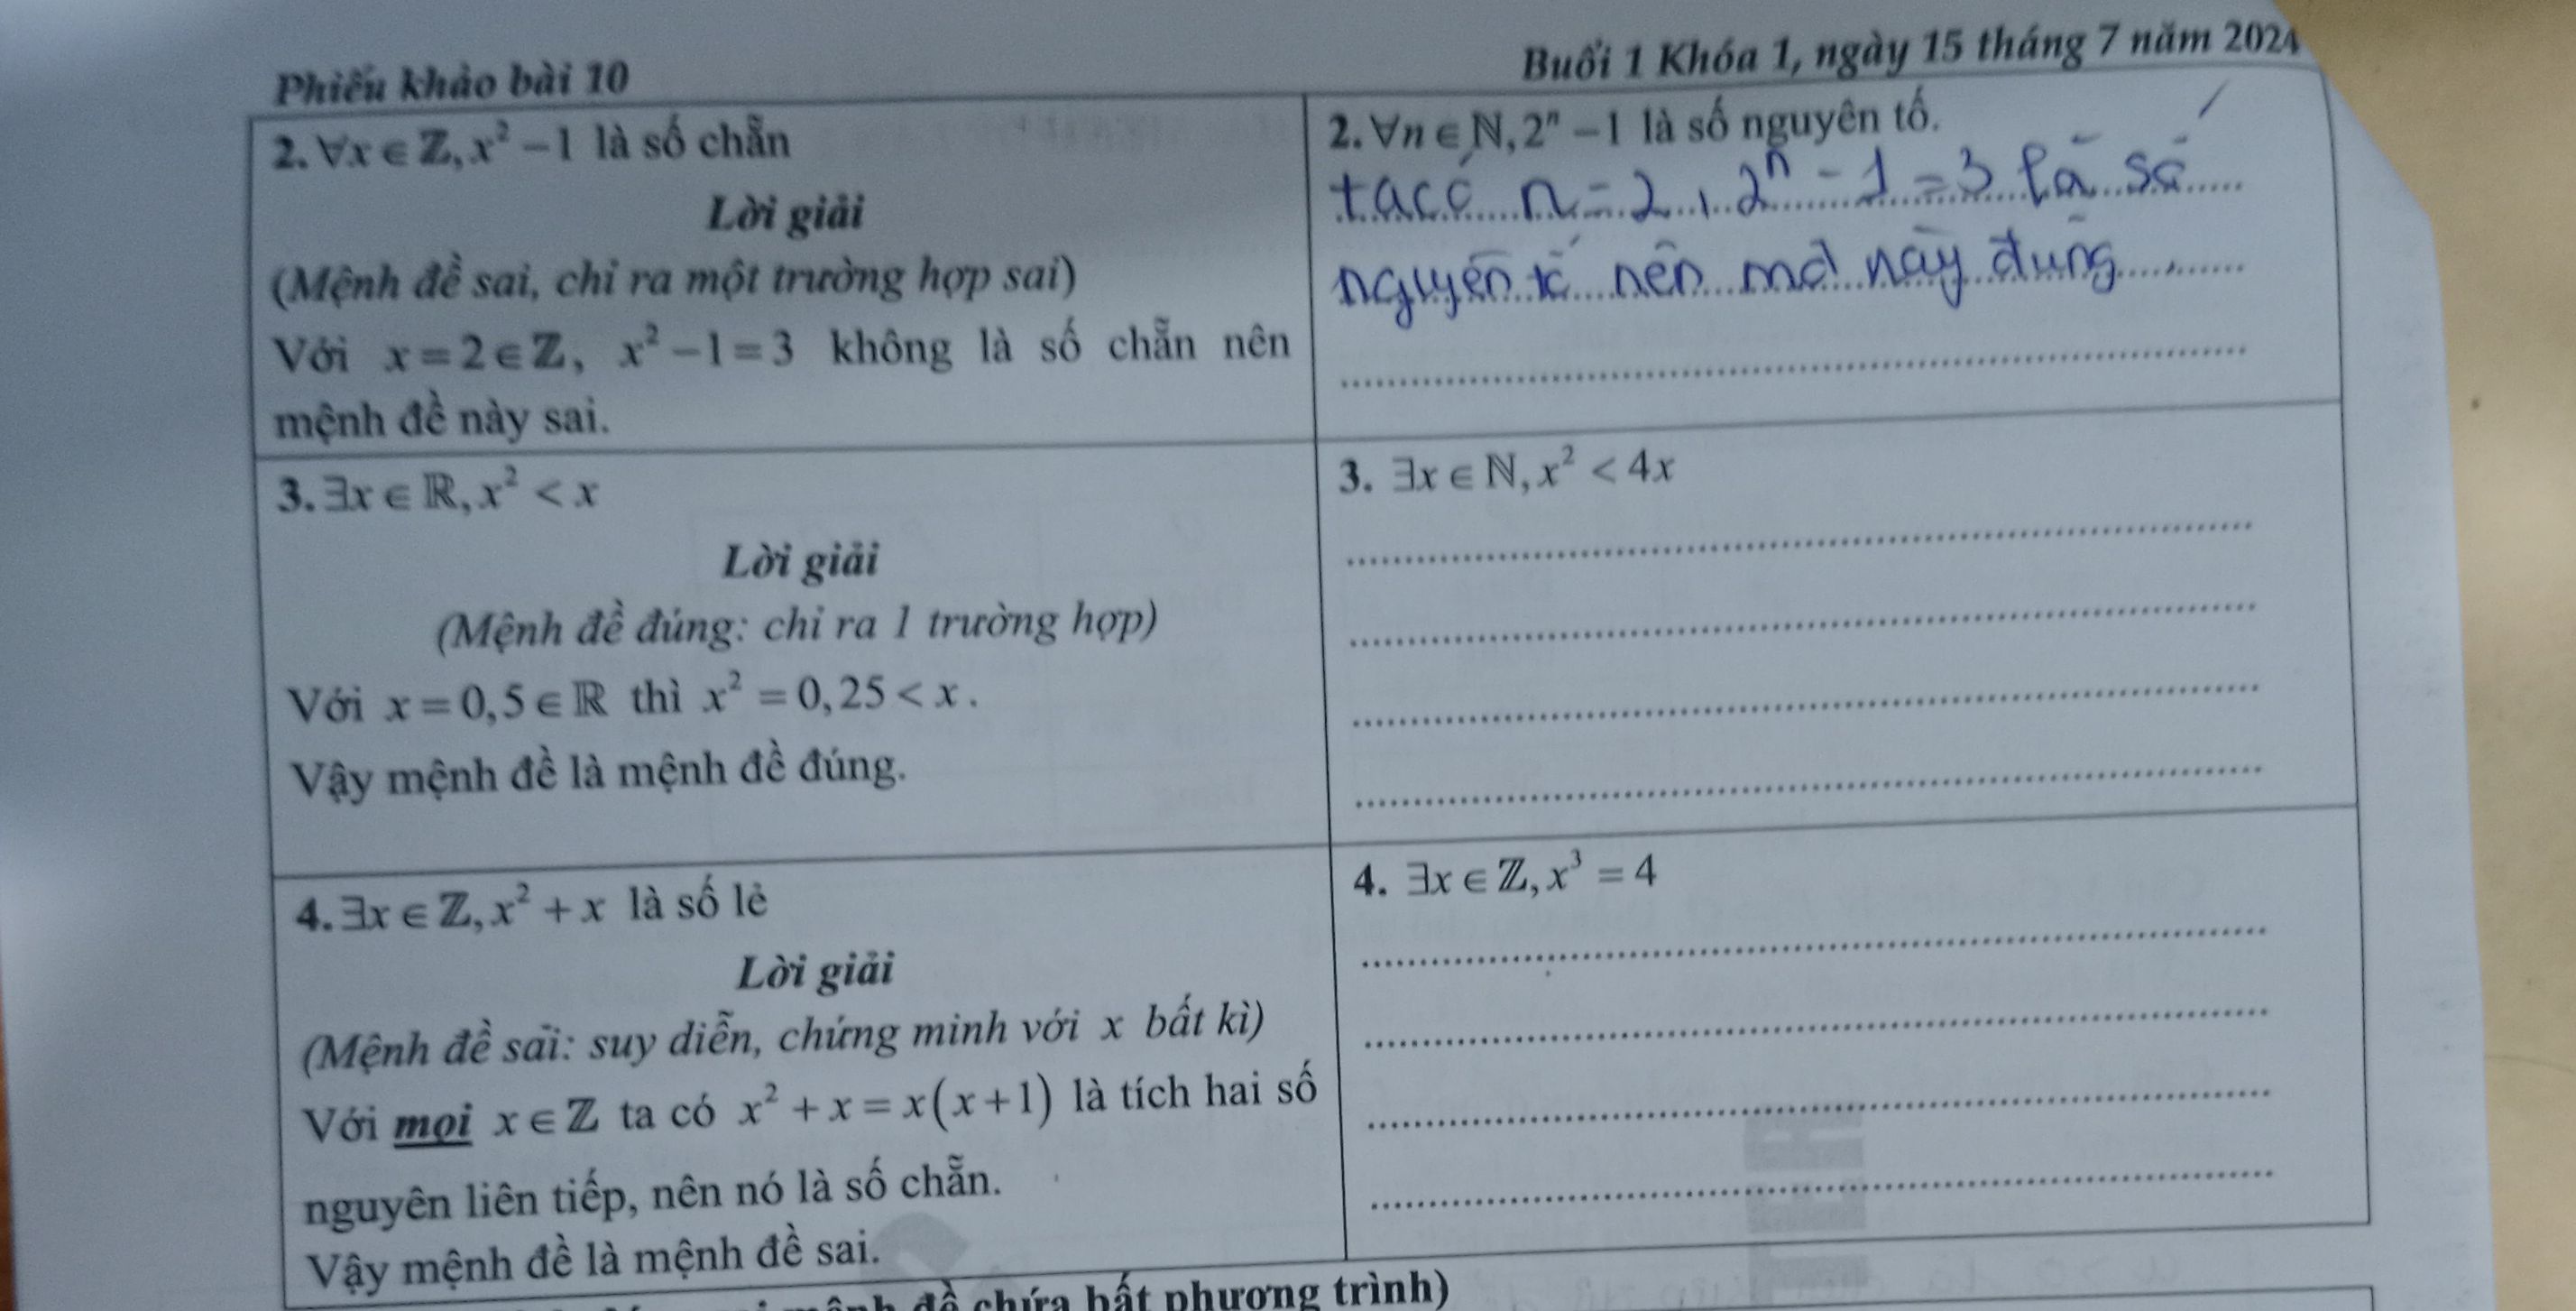 Phiếu khảo bài 10
Buổi 1 Khóa 1, ngày 15 tháng 7 năm 2024
2. ∀x ∈ ℤ, x² − 1 là số chẵn
Lời giải
(Mệnh đề sai, chỉ ra một trường hợp sai)
Với x = 2 ∈ ℤ, x² − 1 = 3 không là số chẵn nên
mệnh đề này sai.
2. ∀n ∈ ℕ, 2ⁿ − 1 là số nguyên tố.
ta có n = 2, 2ⁿ − 1 = 3 là số
nguyên tố nên mđ này đúng
3. ∃x ∈ ℝ, x² < x
Lời giải
(Mệnh đề đúng: chỉ ra 1 trường hợp)
Với x = 0,5 ∈ ℝ thì x² = 0,25 < x.
Vậy mệnh đề là mệnh đề đúng.
3. ∃x ∈ ℕ, x² < 4x
4. ∃x ∈ ℤ, x² + x là số lẻ
Lời giải
(Mệnh đề sai: suy diễn, chứng minh với x bất kì)
Với mọi x ∈ ℤ ta có x² + x = x(x+1) là tích hai số
nguyên liên tiếp, nên nó là số chẵn.
Vậy mệnh đề là mệnh đề sai.
4. ∃x ∈ ℤ, x³ = 4
đề chứa bất phương trình)